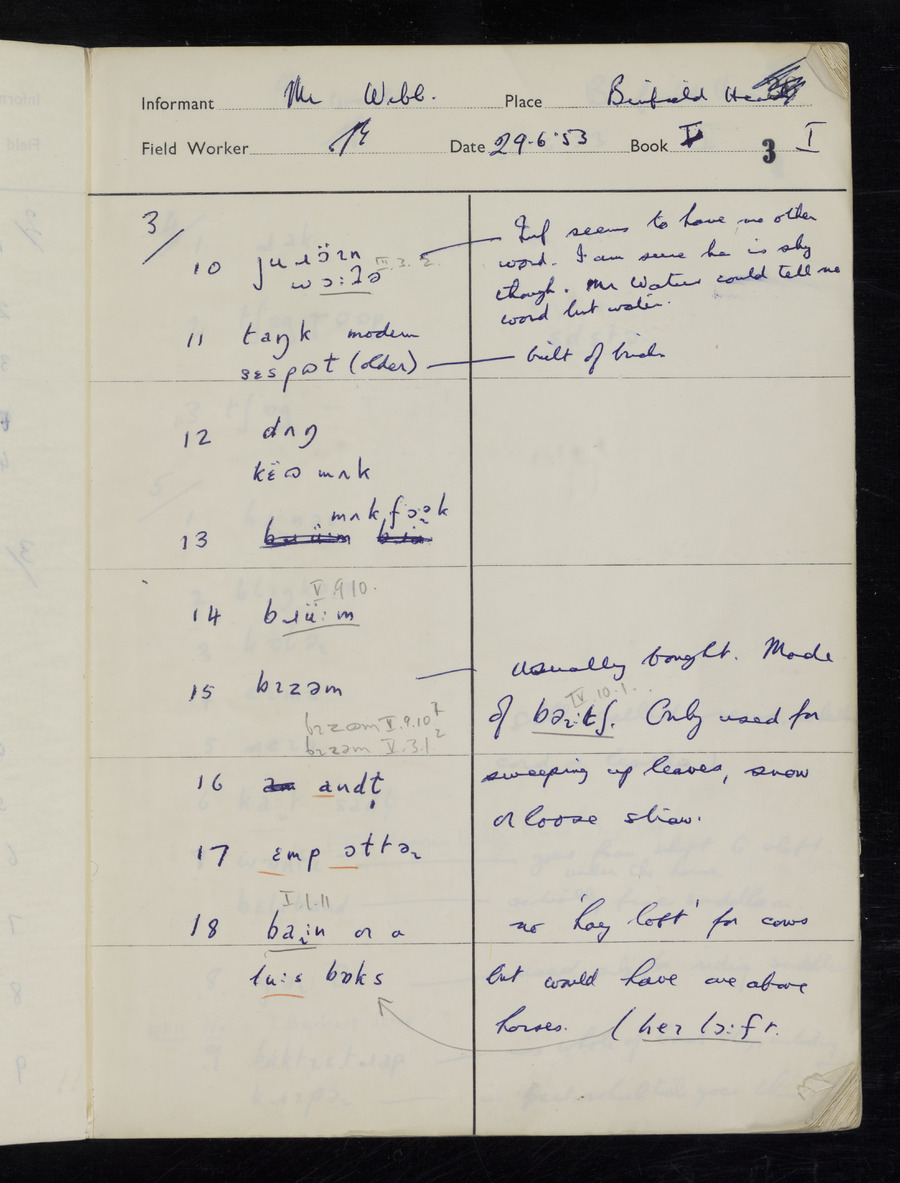 Informant Mr Webb. Place Binfield Heath
Field Worker Date 29.6.53 Book I 3 I
3/
10 juɹɪ̈ɔɪn III.3.2.
wɔ:ʔə
Inf seems to have no other
word. I am sure he is shy
though. Mr Waters could tell me
word but water.
11 taŋk modern
sɛspɒt (older)
built of brick
12 dʌŋ
kɛ̈ɷ mʌk
mʌk fɔək
13
V.9.10.
14 bɹü:m
15 bɪzəm
bɪzəm V.9.10
bɪzəm V.3.1.2
usually bought. Made
of bəɪ:tʃ. Only used for
sweeping up leaves, snow
or loose straw.
IV.10.1.
16 andɫ
17 ɛmp ɔttəɹ
I.1.11
18 ba:ɹn or a
lu:s bɒks
no 'hay loft' for cows
but would have one above
horses. (heɪ lɔ:ft.